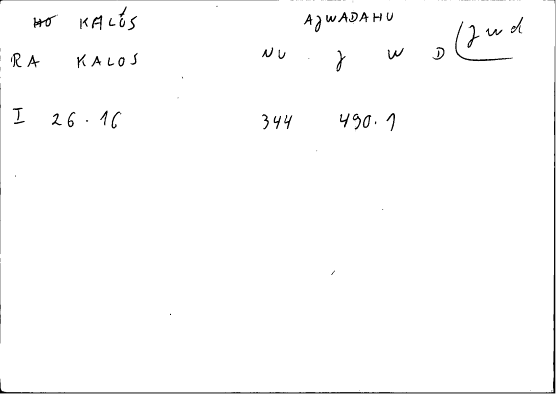 HO KALÓS AJWADAHU
RA KALOS NU J W D (jwd
I 26.16 344 490.1